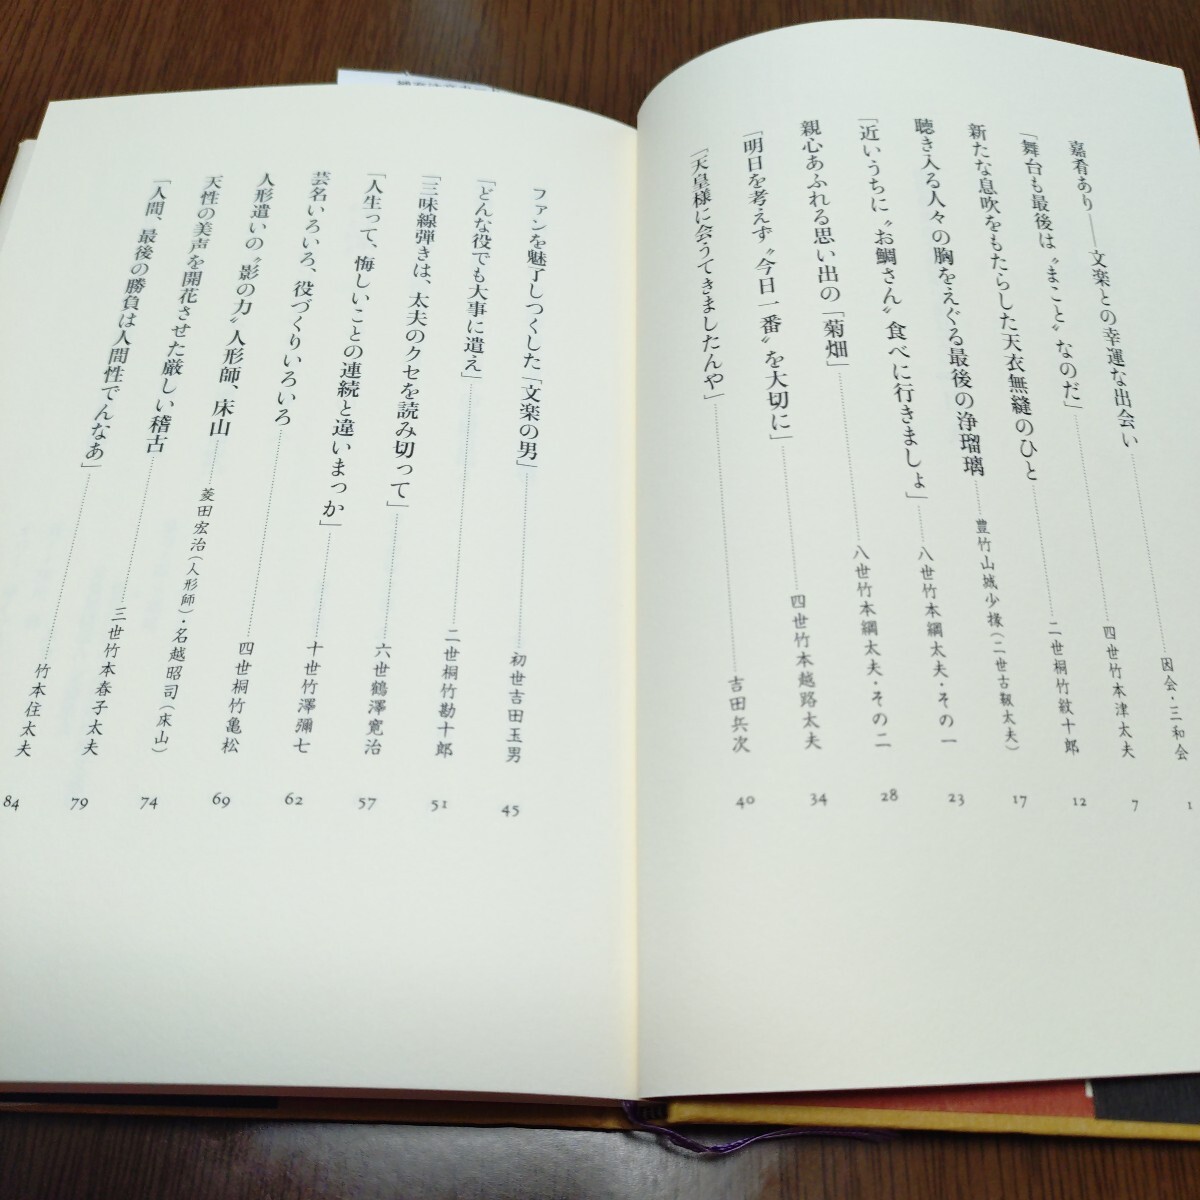 嘉肴あり――文楽との幸運な出会い………因会・三和会 1
「舞台も最後は〝まこと〟なのだ」………四世竹本津太夫 7
新たな息吹をもたらした天衣無縫のひと………二世桐竹紋十郎 12
聴き入る人々の胸をえぐる最後の浄瑠璃………豊竹山城少掾（二世古靱太夫） 17
「近いうちに〝お鯛さん〟食べに行きましょ」………八世竹本綱太夫・その一 23
親心あふれる思い出の「菊畑」………八世竹本綱太夫・その二 28
「明日を考えず〝今日一番〟を大切に」………四世竹本越路太夫 34
「天皇様に会うてきましたんや」………吉田兵次 40
ファンを魅了しつくした「文楽の男」………初世吉田玉男 45
「どんな役でも大事に遣え」………二世桐竹勘十郎 51
「三味線弾きは、太夫のクセを読み切って」………六世鶴澤寛治 57
「人生って、悔しいことの連続と違いまっか」………十世竹澤彌七 62
芸名いろいろ、役づくりいろいろ………四世桐竹亀松 69
人形遣いの〝影の力〟人形師、床山………菱田宏治（人形師）・名越昭司（床山） 74
天性の美声を開花させた厳しい稽古………三世竹本春子太夫 79
「人間、最後の勝負は人間性でんなあ」………竹本住太夫 84